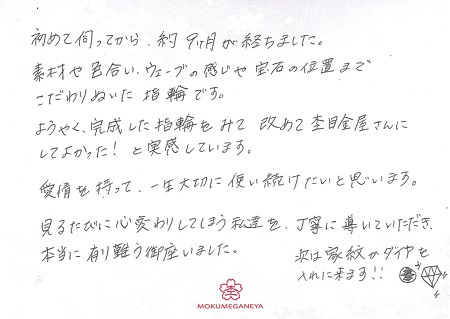 初めて伺ってから、約9ヶ月が経ちました。
素材や色合い、ウェーブの感じや宝石の位置まで
こだわりぬいた指輪です。
ようやく、完成した指輪をみて 改めて杢目金屋さんに
してよかった！と実感しています。
愛情を持って、一生大切に使い続けたいと思います。
見るたびに心変わりしてしまう私達を、丁寧に導いていただき、
本当に有り難う御座いました。
次は家紋かダイヤを
入れに来ます!!
MOKUMEGANEYA